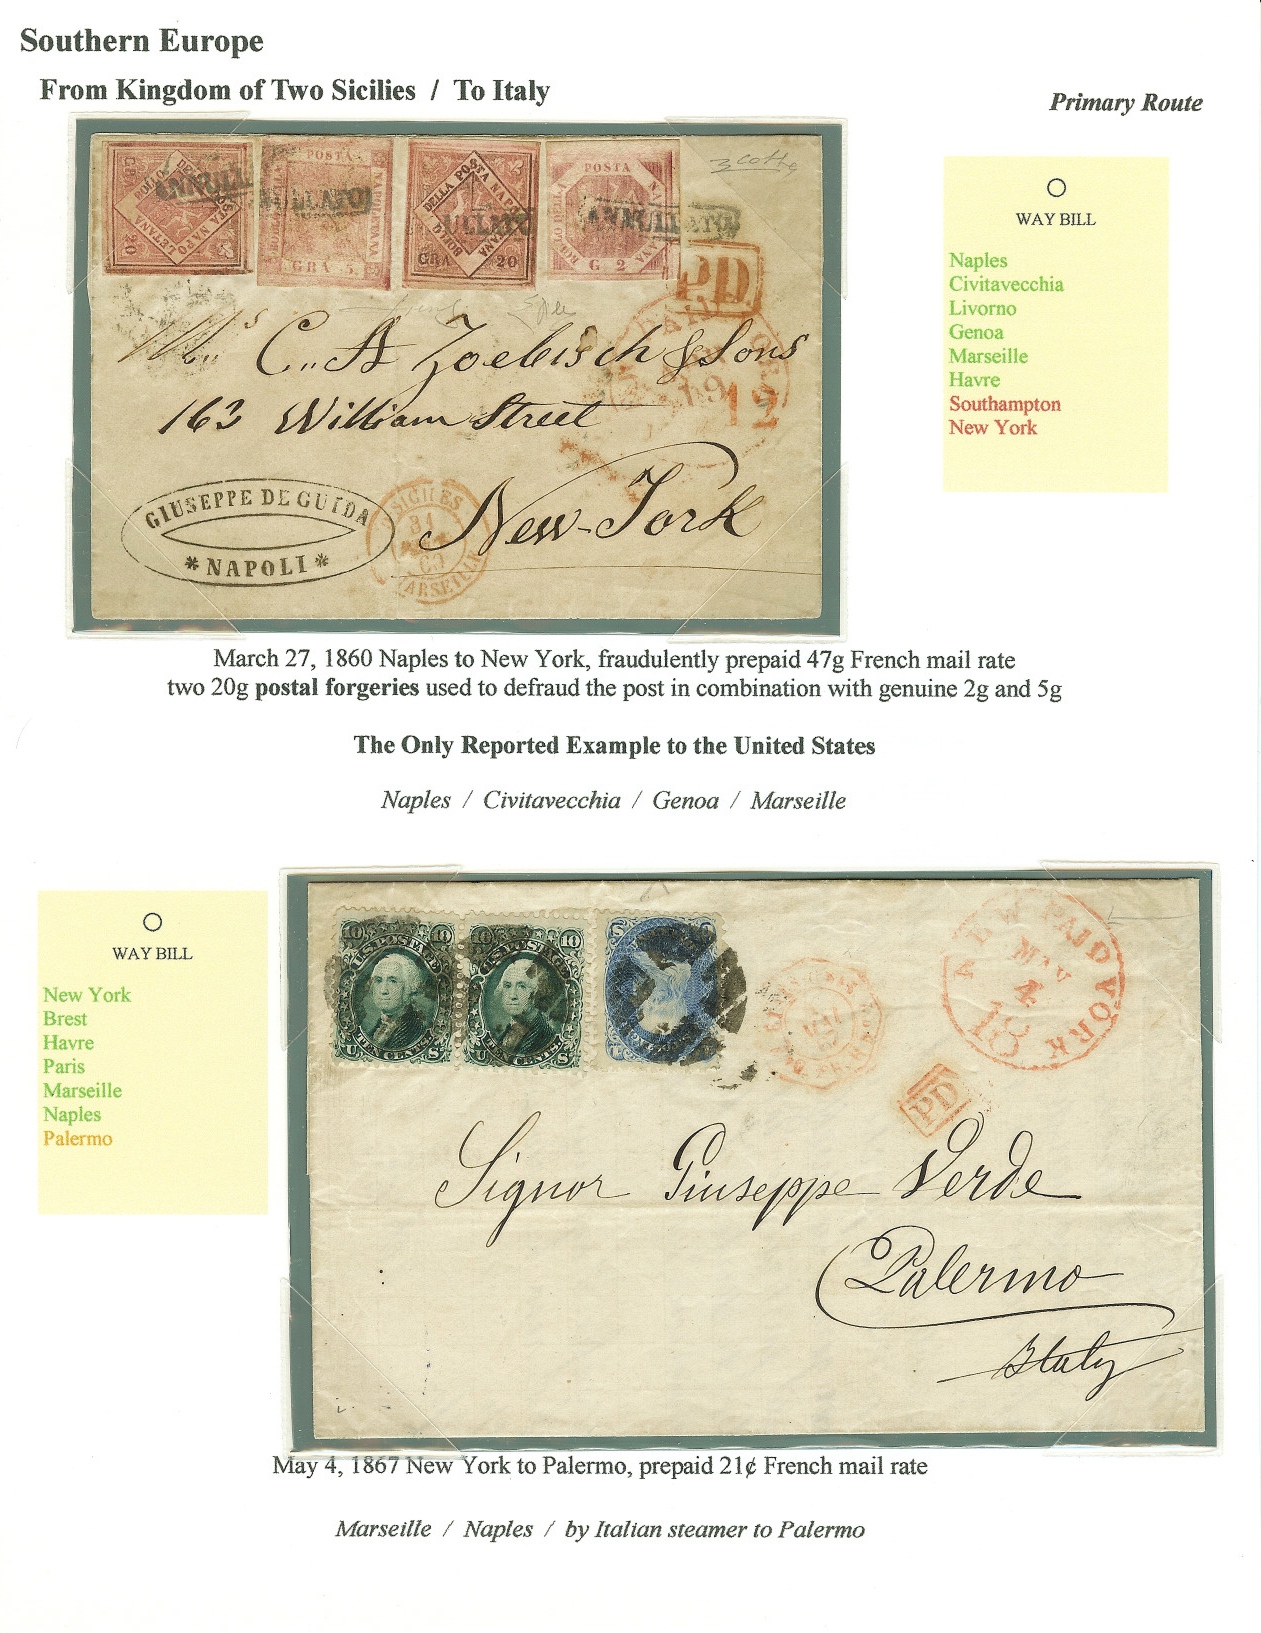 Southern Europe
From Kingdom of Two Sicilies / To Italy
Primary Route
POSTA
ANNULL
NULLATO
ULLATO
ANNULLATO
GRA 5
GRA 20
G. 2
PD
WAY BILL
Naples
Civitavecchia
Livorno
Genoa
Marseille
Havre
Southampton
New York
C. A Zoebisch & Sons
163 William Street
New-York
19
12
GIUSEPPE DE GUIDA
*NAPOLI*
SICILES
31
60
MARSEILLE
March 27, 1860 Naples to New York, fraudulently prepaid 47g French mail rate
two 20g postal forgeries used to defraud the post in combination with genuine 2g and 5g
The Only Reported Example to the United States
Naples / Civitavecchia / Genoa / Marseille
WAY BILL
New York
Brest
Havre
Paris
Marseille
Naples
Palermo
10 U.S. POSTAGE 10
TEN CENTS
U S
10 U.S. POSTAGE 10
TEN CENTS
U S
NEW PAID YORK
MAY
4
18
PD
Signor Giuseppe Verde
Palermo
Italy
May 4, 1867 New York to Palermo, prepaid 21¢ French mail rate
Marseille / Naples / by Italian steamer to Palermo